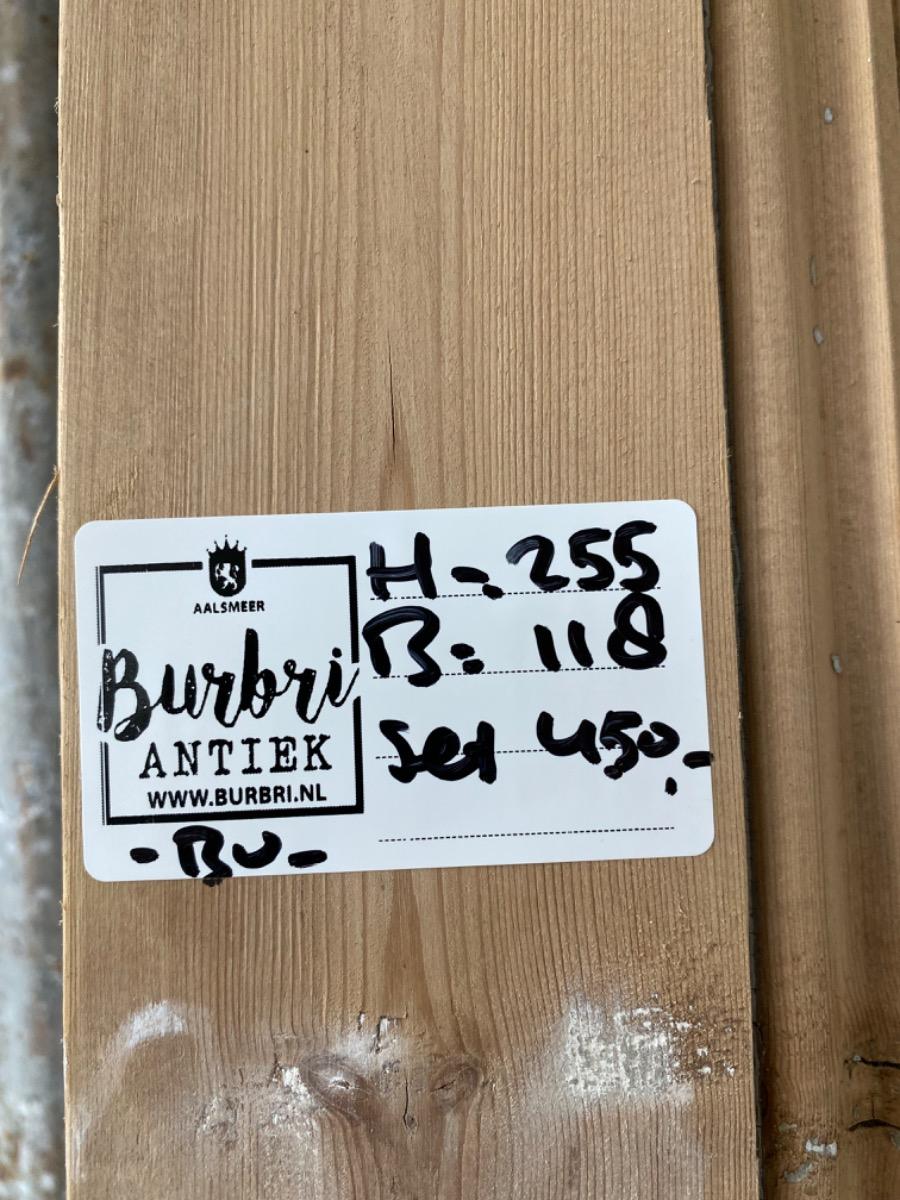 AALSMEER
Burbri
ANTIEK
WWW.BURBRI.NL
- BU -
H: 255
B: 118
Set 450,-